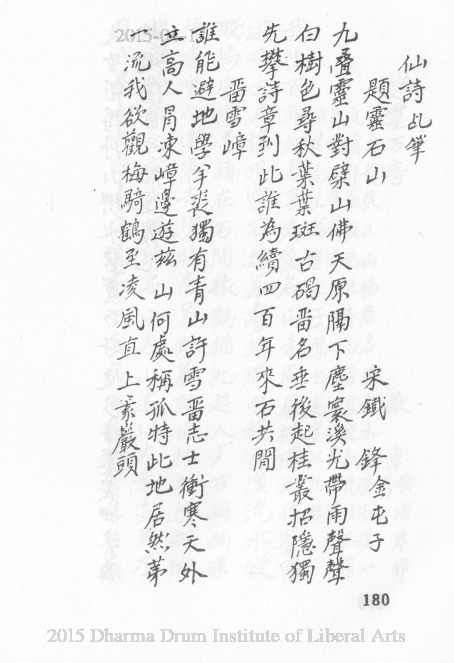 仙詩乩筆
題靈石山
宋鐵 鋒金屯子
九疊靈山對檗山佛天原隔下塵寰溪光帶雨聲聲
白樹色尋秋葉葉斑古碣畱名垂後起桂叢招隱獨
先攀詩章到此誰為續四百年來石共閒
畱雪嶂
誰能避地學羊裘獨有青山許雪畱志士衝寒天外
立高人冐凍嶂邊遊茲山何處稱孤特此地居然第
一流我欲觀梅騎鶴至凌風直上巖頭
180
2015 Dharma Drum Institute of Liberal Arts